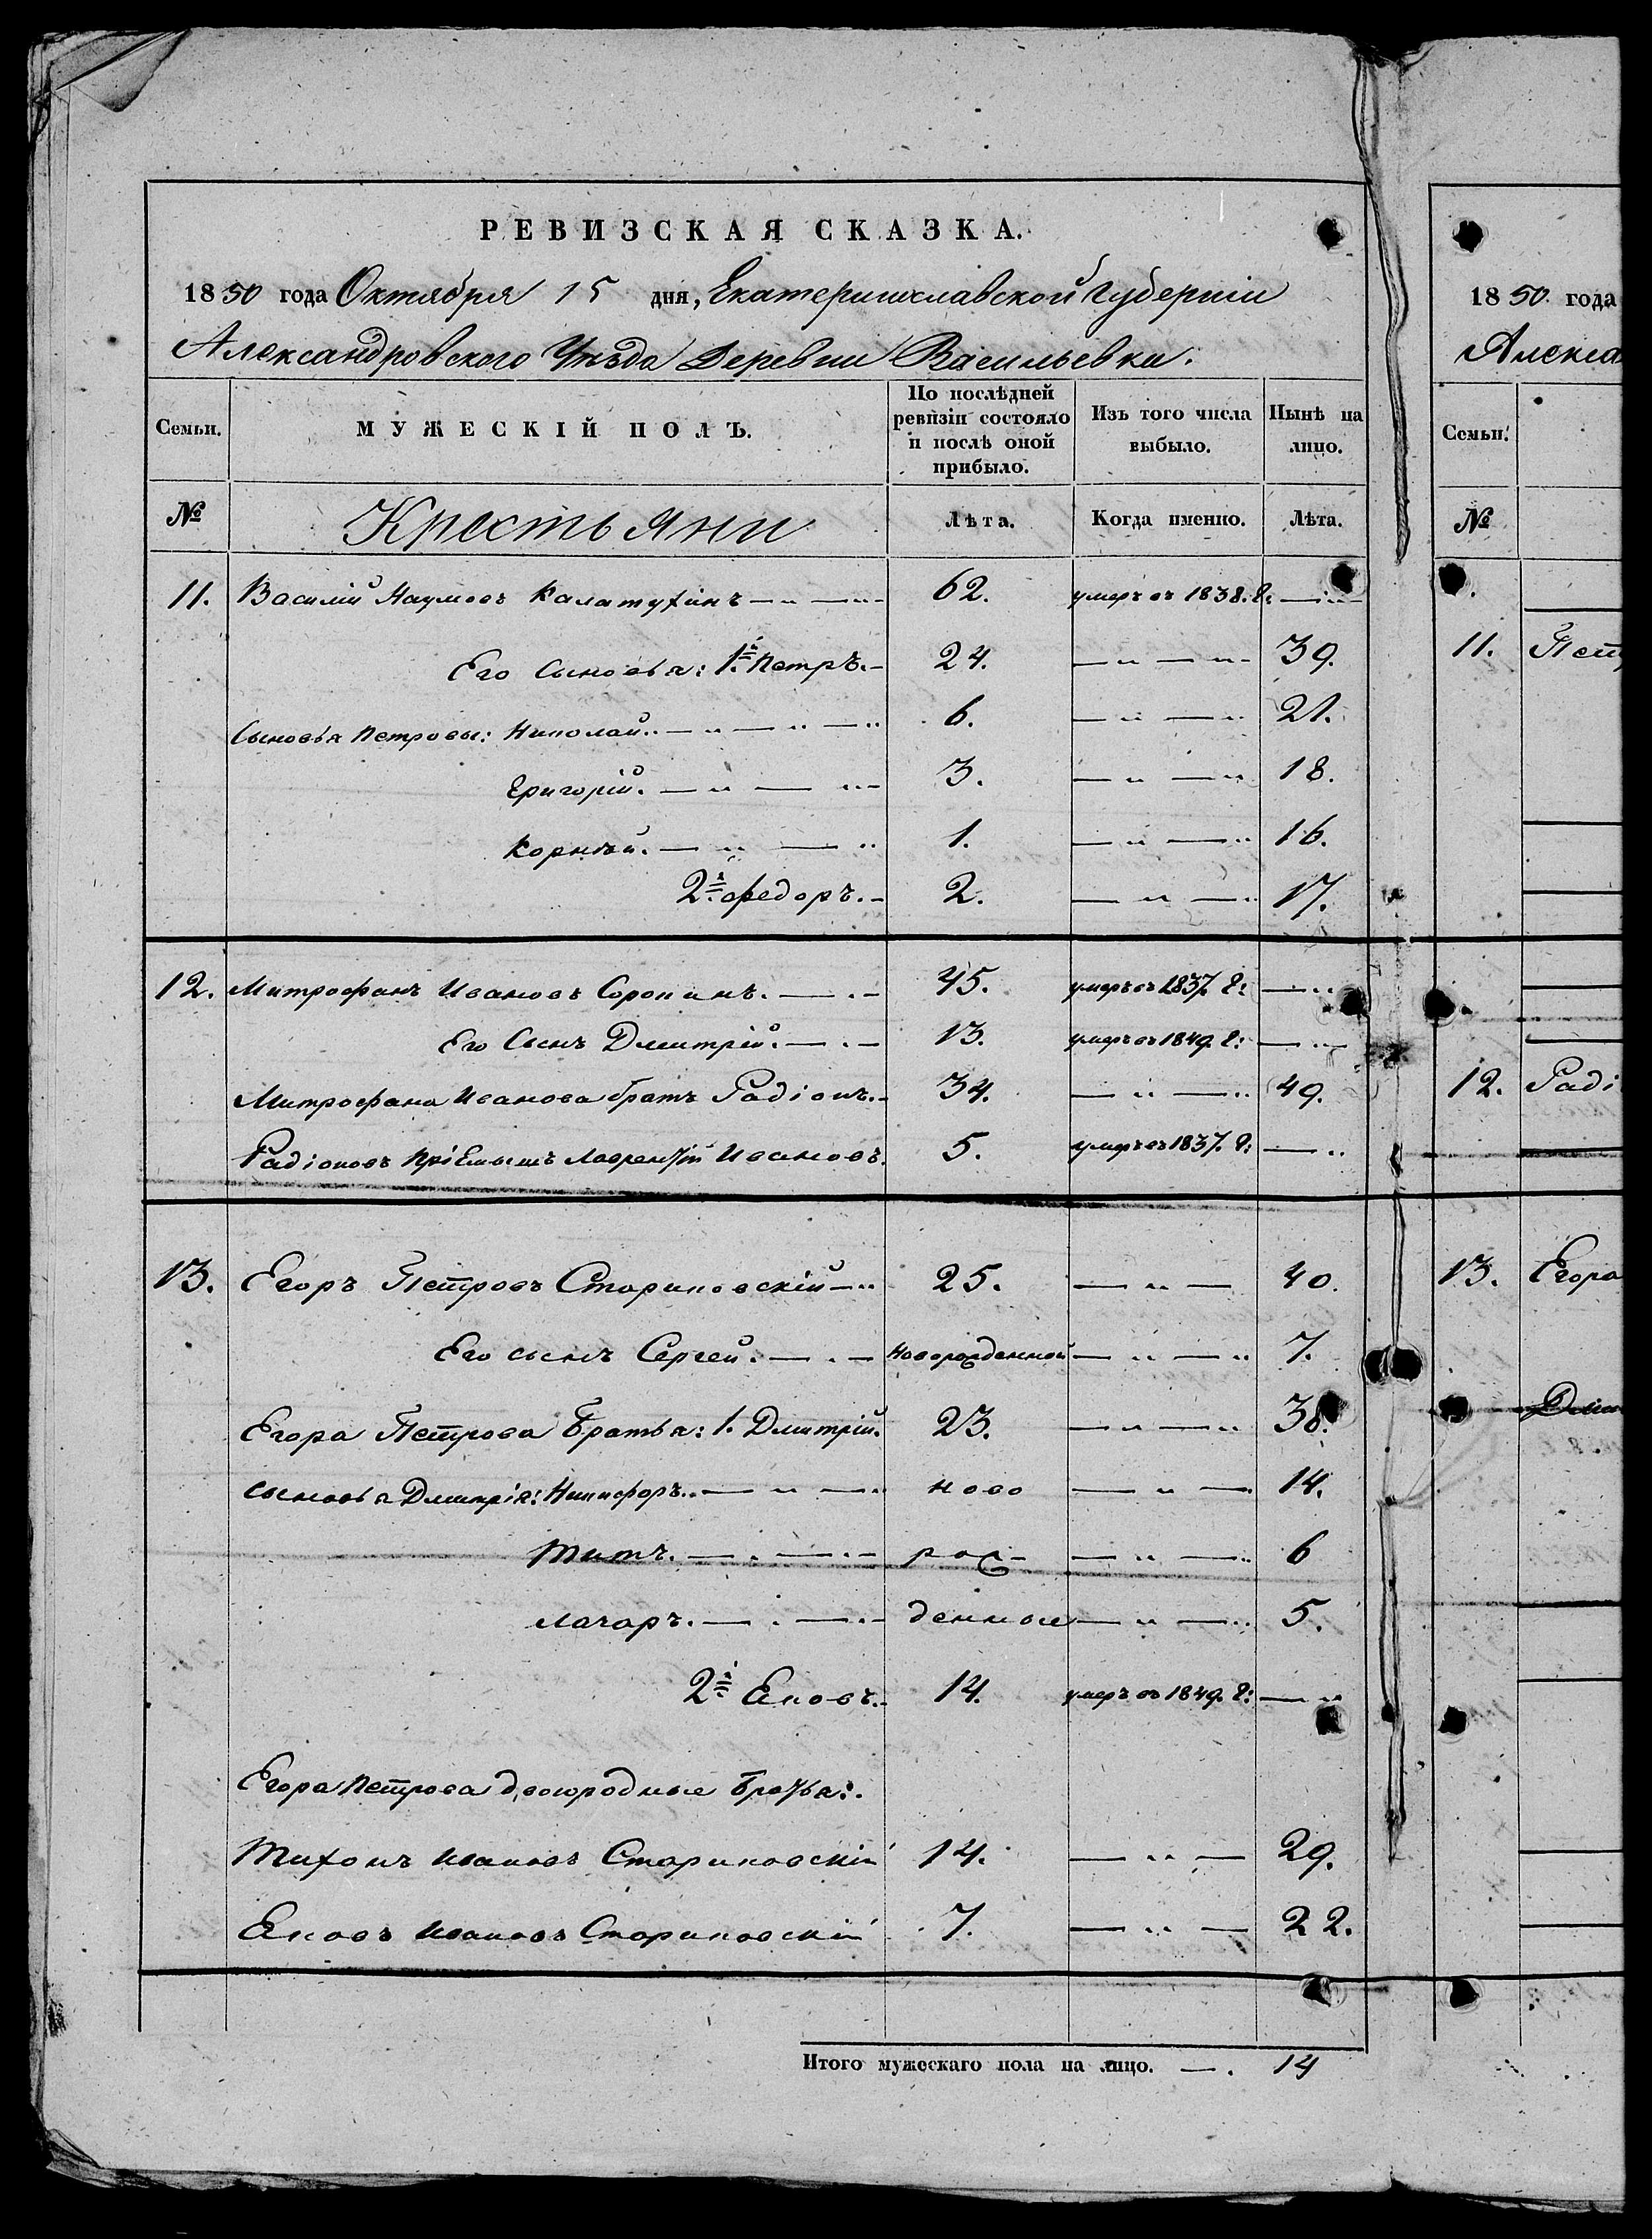 РЕВИЗСКАЯ СКАЗКА.
1850 года Октября 15 дня, Екатеринославской Губернiи
Александровского Уѣзда Деревни Васильевки.
Семьи. МУЖЕСКІЙ ПОЛЪ. По послѣдней ревизіи состояло и послѣ оной прибыло. Изъ того числа выбыло. Нынѣ на лицо.
№ Крестьяни Лѣта. Когда именно. Лѣта.
11. Василій Наумовъ Калатухинъ 62. умеръ въ 1838. г:
Его Сыновья: 1й Петръ. 24. 39.
Сыновья Петровы: Николай. 6. 21.
Григорій. 3. 18.
Корнѣй. 1. 16.
2й Федоръ. 2. 17.
12. Митрофанъ Ивановъ Сорокинъ. 45. умеръ въ 1837. г:
Его Сынъ Дмитрій. 13. умеръ въ 1849. г:
Митрофана Иванова братъ Радіонъ. 34. 49.
Радіоновъ пріемышъ Лаврентій Ивановъ. 5. умеръ въ 1837. г:
13. Егоръ Петровъ Стариковскій 25. 40.
Его сынъ Сергей. Новорожденной 7.
Егора Петрова Братья: 1. Дмитрій. 23. 38.
сыновья Дмитрія: Никифоръ. ново 14.
Титъ. рож- 6
Лазарь. денные 5.
2й Яковъ. 14. умеръ въ 1849. г:
Егора Петрова двоюродные Братья:
Тихонъ Ивановъ Стариковскій 14. 29.
Яковъ Ивановъ Стариковскій 7. 22.
Итого мужескаго пола на лицо. 14
1850 года
Алекса
Семьи.
№
11. Пет
12. Радi
13. Егора